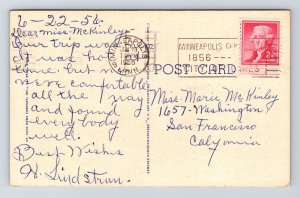 6-22-56
Dear miss McKinley
Our trip was
it was ho
love but
were comfortable
all the way
and found
everybody
well.
Best Wishes
H. Lindstran.
MINNEAPOLIS
MINN.
MINNEAPOLIS
1856
POST CARD
2¢
Miss Marie McKinley
1657-Washington
San Francisco
Calyornia